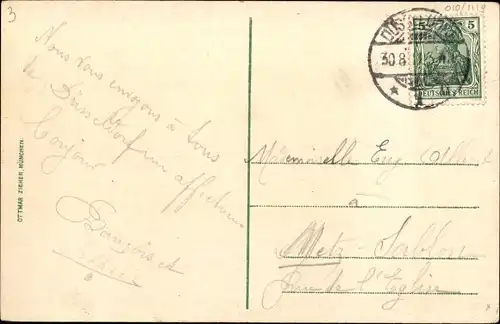 3
010/1119
Nous vous envoyons à tous
de Düsseldorf un affectueux
bonjour
François et
OTTMAR ZIEHER, MÜNCHEN.
DÜS
30.8
5 5
DEUTSCHES REICH
Mademoiselle Eug. Albert
à
Metz-Sablon
Rue de l'Eglise